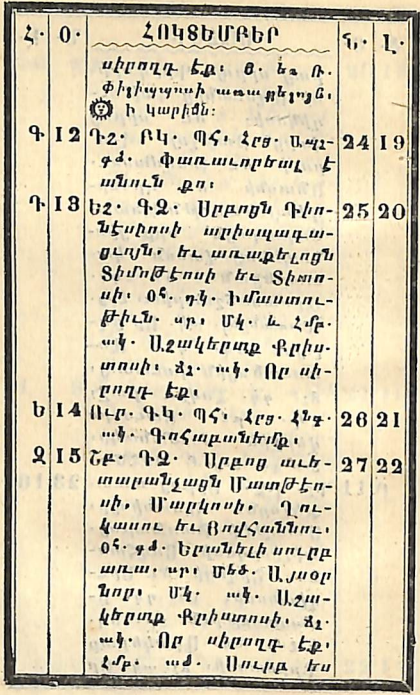 Հ. Օ. ՀՈԿՏԵՄԲԵՐ Ն. Լ.
սիրողդ էք. Թ. եւ Ռ.
Փիլիպպոսի առաքելոյն.
Ի կարիճն.
Գ 12 Դշ. ԲԿ. ՊՀ. Հրց. Առչ- 24 19
գձ. Փառաւորեալ է
անուն քո.
Դ 13 Եշ. ԳՁ. Սրբոցն Դիո- 25 20
նէսիոսի արիսպագա-
ցւոյն եւ առաքելոցն
Տիմոթէոսի եւ Տիտո-
սի. Օհ. դկ. Իմաստու-
թիւն. սր. Մկ. և Հմբ.
ակ. Աշակերտք Քրիս-
տոսի. ճշ. ակ. Որ սի-
րողդ էք.
Ե 14 Ուր. ԳԿ. ՊՀ. Հրց. Հնգ. 26 21
ակ. Գոհաբանեմք.
Զ 15 Շբ. ԴՁ. Սրբոց աւե- 27 22
տարանչացն Մատթէո-
սի. Մարկոսի. Ղու-
կասու եւ Յովհաննու.
Օհ. գձ. Երանելի սուրբ
առա. սր. Մեծ. Այսօր
նոր. Մկ. ակ. Աշա-
կերտք Քրիստոսի. ճշ.
ակ. Որ սիրողդ էք.
Հմբ. աձ. Սուրբ ես